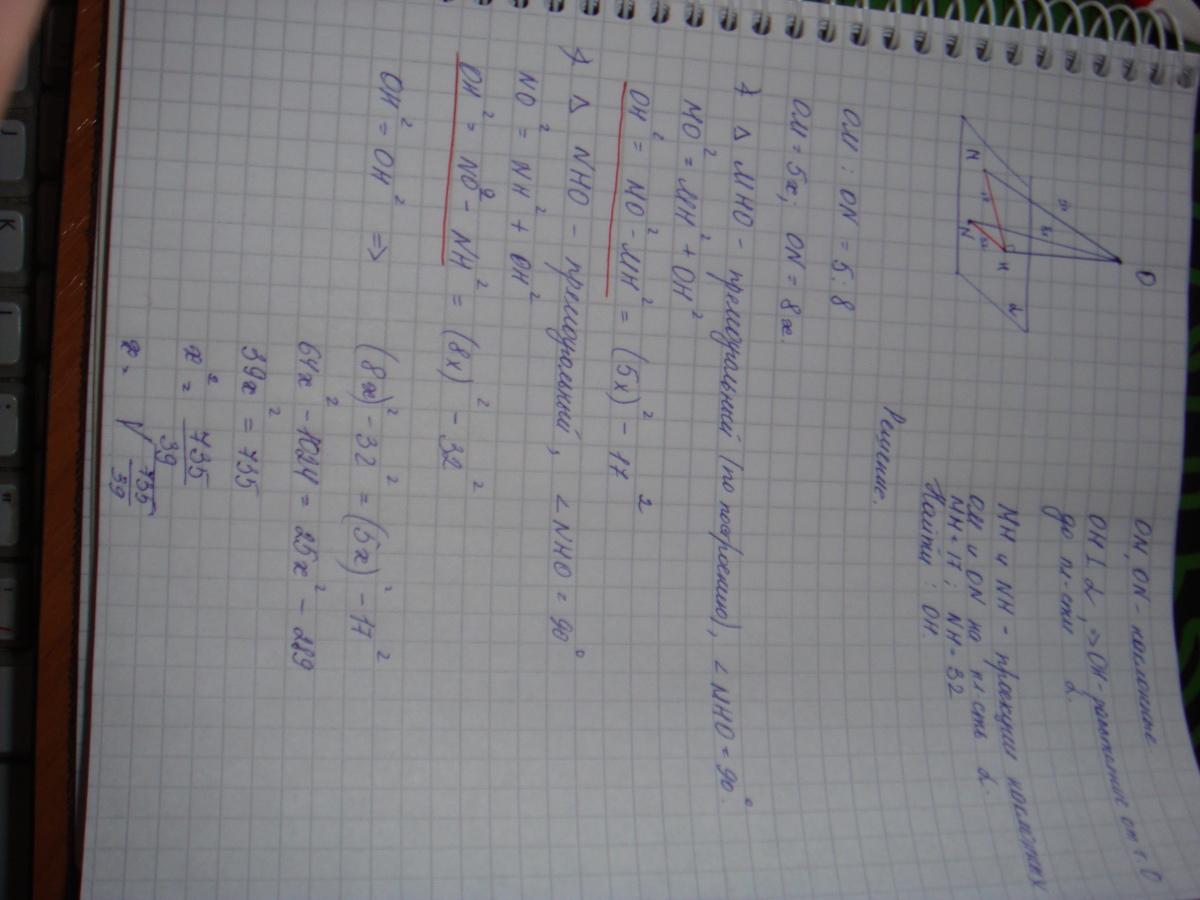 O
N
N
H
α
OM, ON - наклонные
OH ⊥ α, => OH - расстояние от т. O
до пл-сти α.
MH и NH - проекции наклонных
OM и ON на пл-сть α.
MH = 17; NH = 32
Найти: OH.
Решение.
OM : ON = 5 : 8
OM = 5x; ON = 8x.
1) Δ MHO - прямоугольный (по построению), ∠ MHO = 90°.
MO² = MH² + OH²
OH² = MO² - MH² = (5x)² - 17²
Δ NHO - прямоугольный, ∠ NHO = 90°
NO² = NH² + OH²
OH² = NO² - NH² = (8x)² - 32²
OH² = OH² =>
(8x)² - 32² = (5x)² - 17²
64x² - 1024 = 25x² - 289
39x² = 735
x² = 735/39
x = √735/39